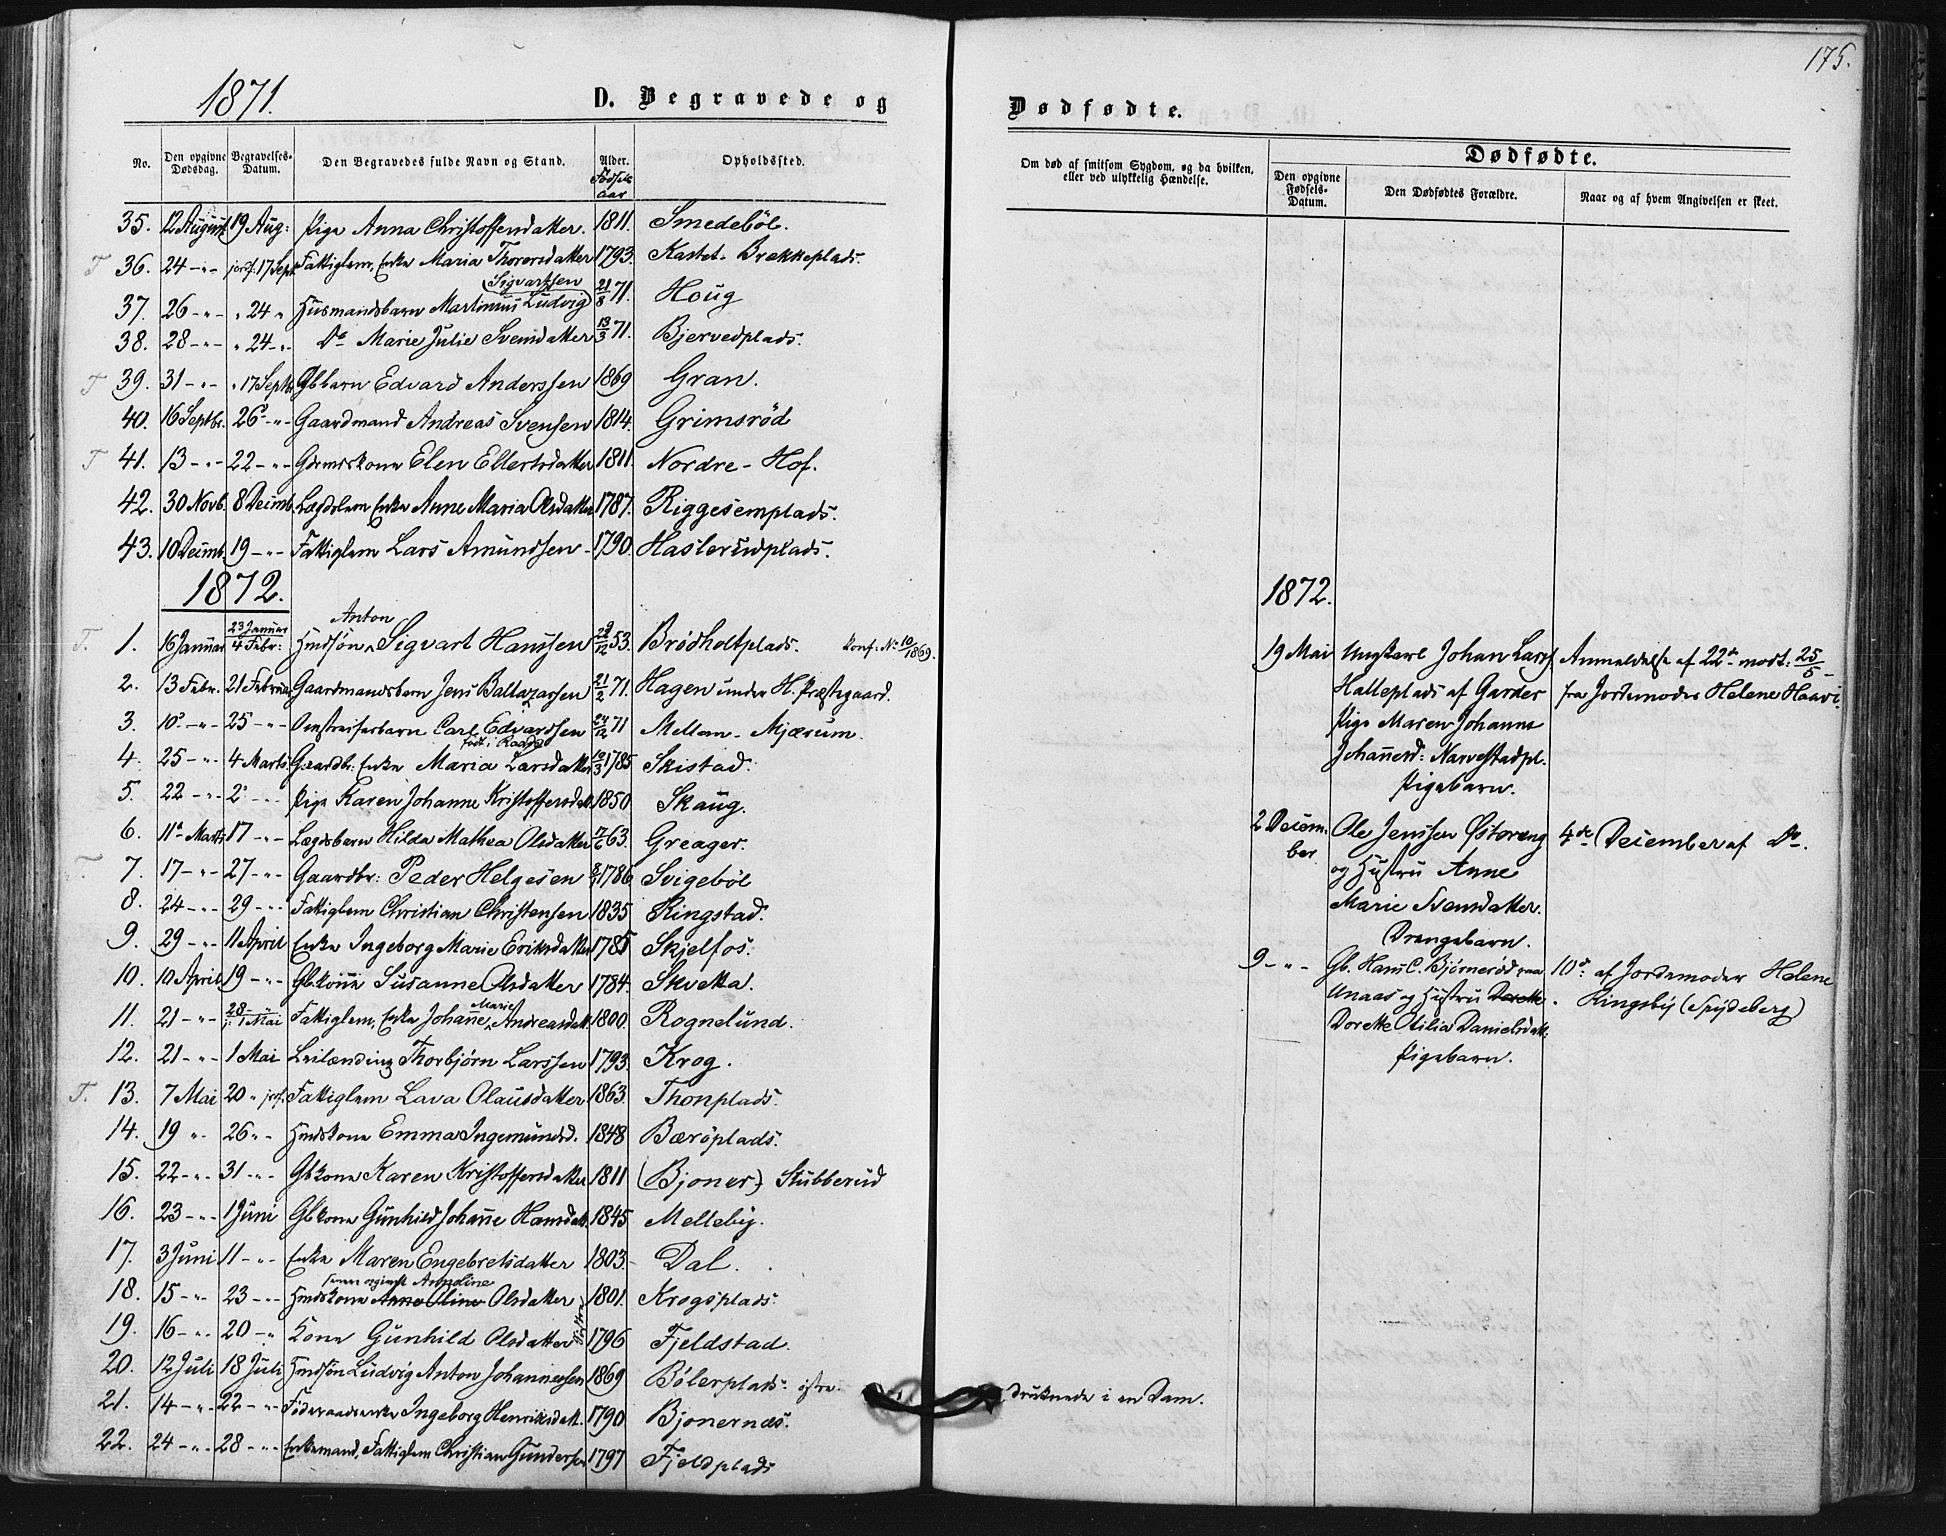 1871.
D. Begravede og
No. Den opgivne Dødsdag. Begravelses-Datum. Den Begravedes fulde Navn og Stand. Alder. Fødselsaar Opholdssted.
35. 12 August 19 Aug: Pige Anna Christoffersdatter. 1811. Smedebøl.
T 36. 24 -"- jordf. 17 Sept Fattiglem, Enke Maria Thorersdatter 1793. Kastet- Brækkeplads.
Sigvartsen
37. 26 -"- " 24 " Husmandsbarn Martinius Ludvig 21/8 71. Houg
38. 28 -"- " 24 -"- Do Marie Julie Svensdatter 13/3 71. Bjervedplads.
T 39. 31 -"- " 17 Septb. Gbbarn Edvard Anderssen 1869 Gran.
40. 16 Septbr. 26 -"- Gaardmand Andreas Svensen 1814. Grimsrød
T 41. 13 -"- 22 -"- Grmdskone Elen Ellertsdatter 1811. Nordre-Hof.
42. 30 Novb. 8 Decemb. Lægdslem Enke Anne Maria Olsdatter 1787. Riggesemplads.
43. 10 Decemb. 19 -"- Fattiglem Lars Amundsen - 1790. Haslerudplads.
1872.
Anton
T. 1. 16 Januar 23 Januar 4 Febr: Hmdsøn Sigvart Hanssen 22/12 53. Brødholtplads. Conf. No 10/1869.
2. 13 Febr. 21 Februar Gaardmandsbarn Jens Baltazarsen 21/2 71. Hagen under H. Præstegaard.
3. 10 -"- 25 -"- Omstreiferbarn Carl Edvardsen 24/12 71 Mellem-Mjærum.
født i Raade
4. 25 -"- 4 Marts Gaardbr: Enke Maria Larsdatter 10/3 1785 Skistad.
5. 22 -"- 2 -"- Pige Karen Johanne Kristoffersdatt. 1850 Skaug.
6. 11 Marts 17 -"- Lægdsbarn Hilda Mathea Olsdatter 7/6 63. Greager.
T. 7. 17 -"- 27 -"- Gaardbr: Peder Helgesen 1786 Svigebøl
8. 24 -"- 29 -"- Fattiglem Christian Christensen 1835 Ringstad.
9. 29 -"- 11 April Enke Ingeborg Marie Eriksdatter 1785 Skjelfos.
10. 10 April 19 -"- Gbkone Susanne Olsdatter 1784. Skvetta.
Marie
11. 21 -"- 28 -"- j. 1 Mai Fattiglem, Enke Johanne Andreasdatt. 1800. Rognelund.
12. 21 -"- 1 Mai Leilænding Thorbjørn Larssen 1793. Krog.
T. 13. 7 Mai 20 " jordf. Fattiglem Lava Olausdatter 1863. Thonplads.
14. 19 " 26 " - Hmdskone Emma Ingemundsd. 1848 Bærøplads.
15. 22 -"- 31 -"- Gbkone Karen Kristoffersdatter 1811 (Bjoner) Stubberud
16. 23 -"- 1 Juni Gbkone Gunhild Johanne Hansdatt. 1845 Melleby.
17. 3 Juni 11 -"- Enke Maren Engebretsdatter 1803. Dal.
senere opgivet Arnoline
18. 15 -"- 23 -"- Hmdskone Anne Oline Olsdatter 1801. Krogsplads.
19. 16 -"- 20 -"- Kone Gunhild Olsdatter 1796 Fjeldstad.
20. 12 Juli 18 Juli Hmdsøn Ludvig Anton Johannessen 1869 Bølerplads. østre.
21. 14 -"- 22 -"- Føderaadsenke Ingeborg Henriksdatt. 1790 Bjonernæs.
22. 24 -"- 28 -"- Enkemand, Fattiglem Christian Gundersen 1797 Fjeldplads
175.
Dødfødte.
Om død af smitsom Sygdom, og da hvilken, eller ved ulykkelig Hændelse.
Dødfødte.
Den opgivne Fødsels-Datum. Den Dødfødtes Forældre. Naar og af hvem Angivelsen er skeet.
1872.
19 Mai Ungkarl Johan Lars. Anmeldelse af 22de modt: 25/5 -
Halleplads af Garder fra Jordemoder Helene Haavi.
Pige Maren Johanne
Johannesd: Narvestadpl.
Pigebarn.
2 December Ole Jenssen Østereng 4de December af Do.
og Hustru Anne
Marie Svensdatter.
Drengebarn.
9 -"- Gb. Hans C. Bjørnerød paa 10de af Jordemoder Helene
Unaas og Hustru Dorette Ringsby (Spydeberg)
Dorette Otilia Danielsdatt.
Pigebarn.
druknede i en Dam.